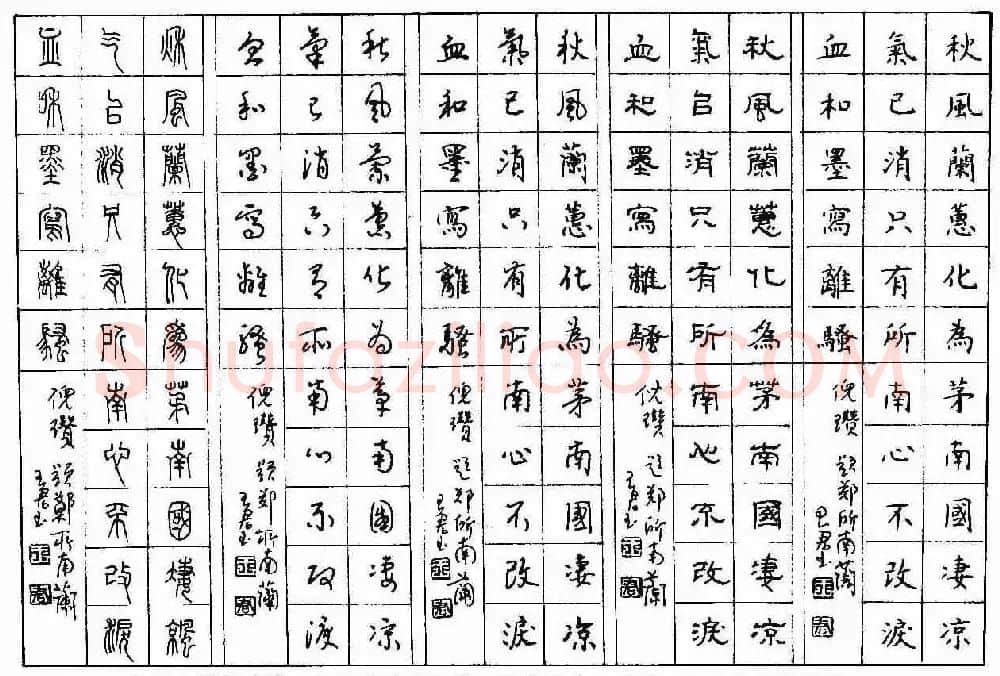 秋風蘭蕙化為茅南國凄凉
氣已消只有所南心不改淚
血和墨寫離騷
倪瓚 題鄭所南蘭
秋風蘭蕙化為茅南國凄凉
氣已消只有所南心不改淚
血和墨寫離騷
倪瓚 題鄭所南蘭
秋風蘭蕙化為茅南國凄凉
氣已消只有所南心不改淚
血和墨寫離騷
倪瓚 題鄭所南蘭
秋風蘭蕙化為茅南國凄凉
氣已消只有所南心不改淚
血和墨寫離騷
倪瓚 題鄭所南蘭
秋風蘭蕙化為茅南國凄凉
氣已消只有所南心不改淚
血和墨寫離騷
倪瓚 題鄭所南蘭
Shufaziliao.COM